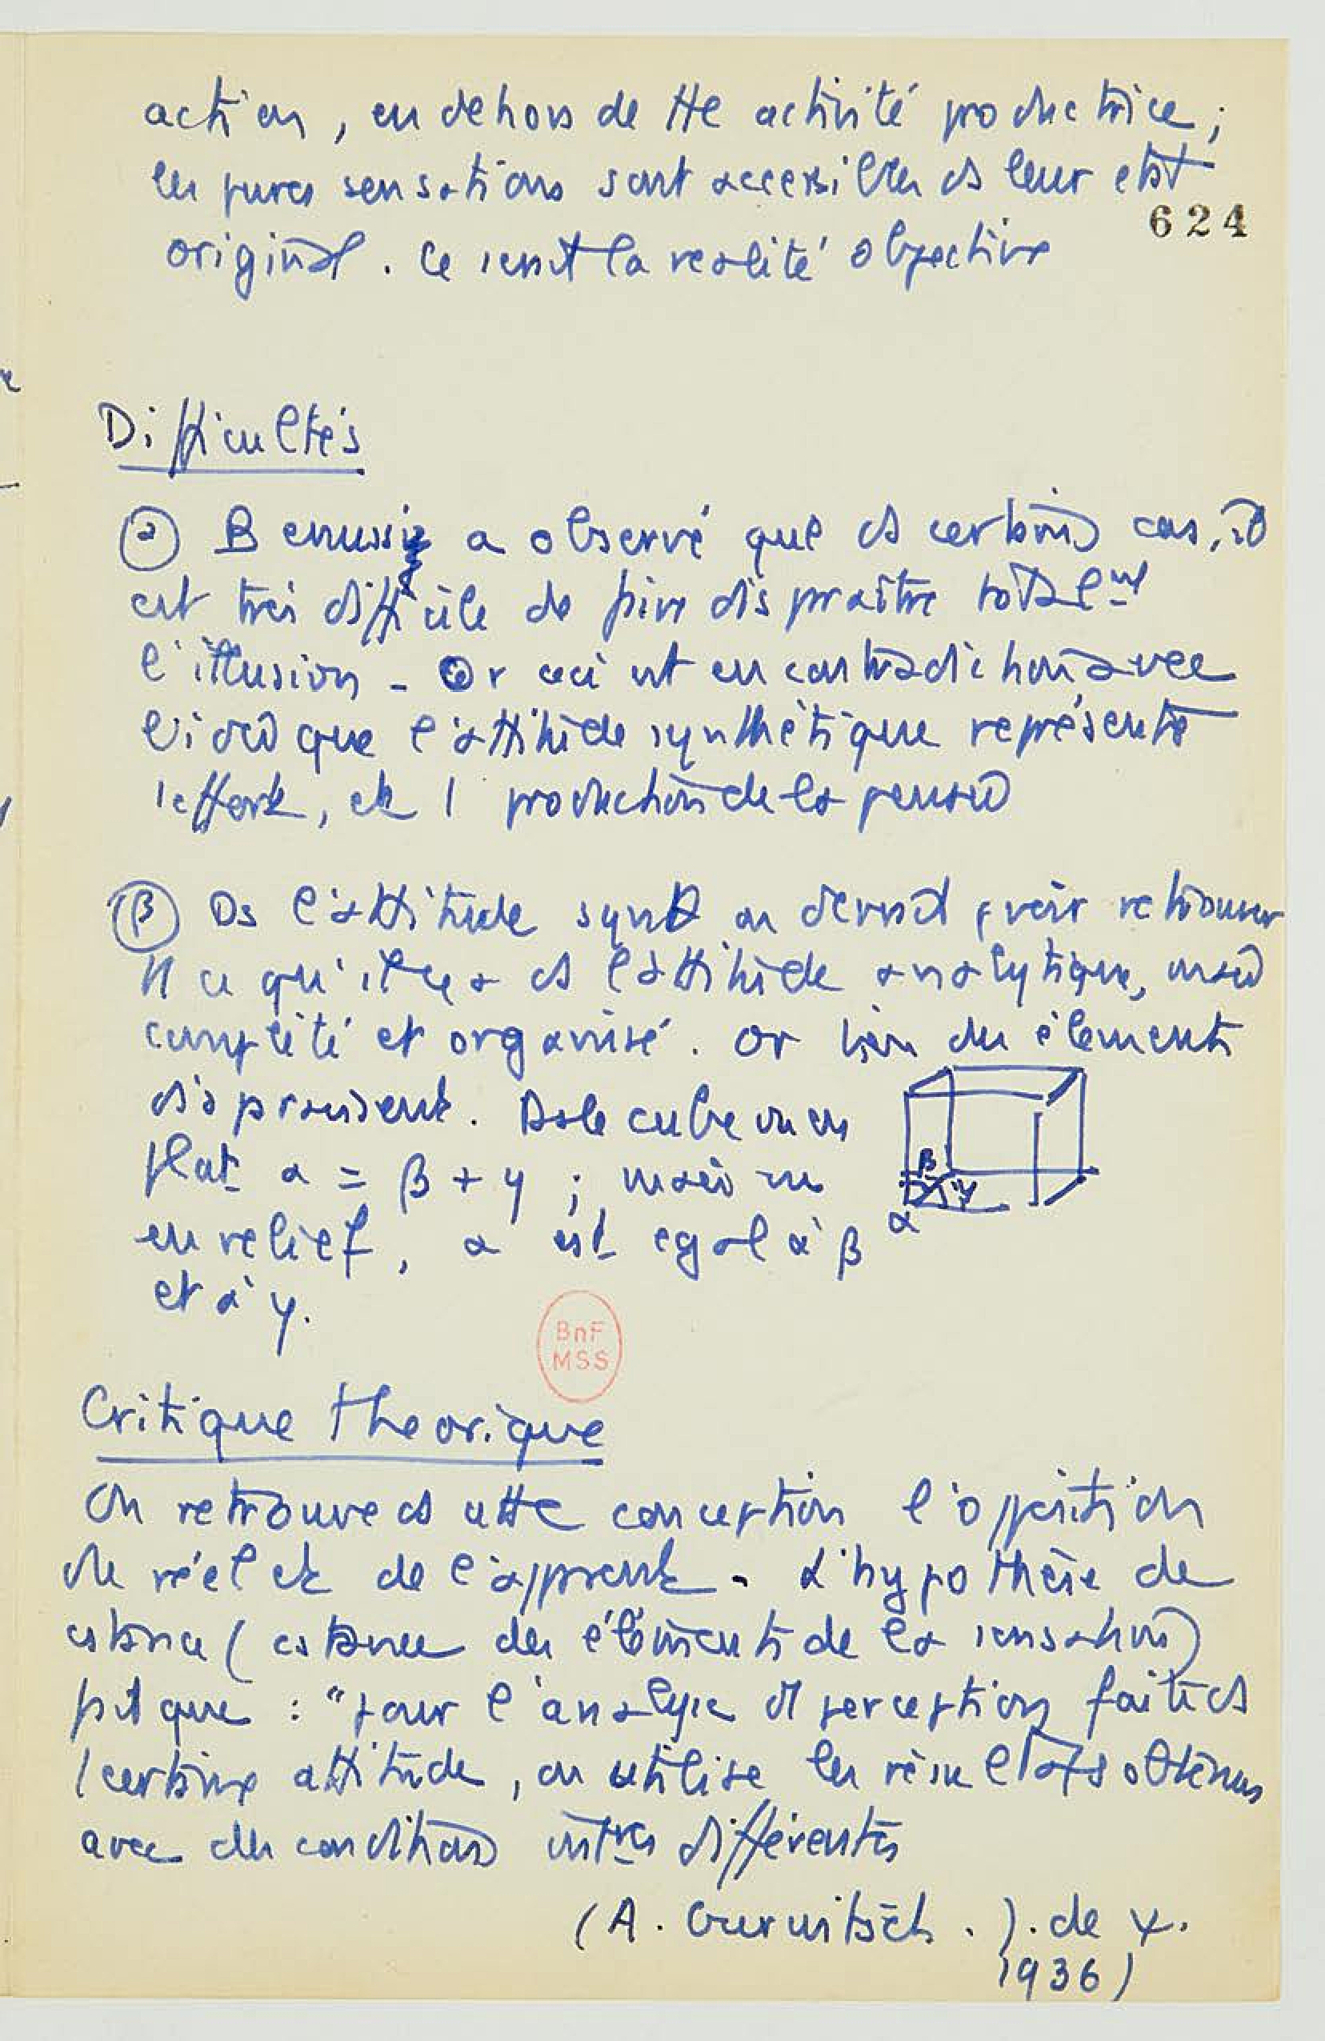 action, en dehors de tte activité productrice ;
les pures sensations sont accessibles ds leur état
624
original. Ce serait la réalité objective
Difficultés
α Benussi a observé que ds certains cas, il
est très difficile de faire disparaître total^mt
l'illusion - Or ceci est en contradiction avec
l'idée que l'attitude synthétique représente
l'effort, et la production de la pensée
β Ds l'attitude synth on devrait pvoir retrouver
tt ce qu'il y a ds l'attitude analytique, mais
complété et organisé. Or bien des éléments
disparaissent. Ds le cube vu en
plat α = β + γ ; mais vu
en relief, α est égal à β
et à γ.
β
γ
α
BnF
MSS
Critique théorique
On retrouve ds cette conception l'opposition
du réel et de l'apparent. L'hypothèse de
cstance (cstance des éléments de la sensation)
fait que : "pour l'analyse d' perception faite ds
1 certaine attitude, on utilise les résultats obtenus
avec des conditions différentes
(A. Gurwitsch. J. de ψ.
1936)